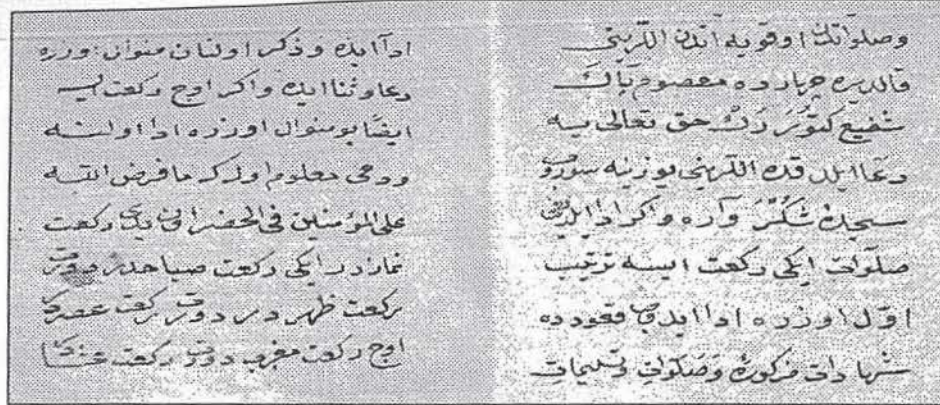 وصلواتك اوقويه آندن اللرينى
قالديره چهارده معصوم پاك
شفيع كتورر رك حق تعالى يه
دعا ايلدكده اللرينى يوزينه سوروب
سجدۀ شكر وآره واكر ادا ايلديكى
صلوات ايكى ركعت ايسه ترتيب
اول اوزره ادا ايدوب قعودده
شهادات مذكوره وصلوات وتسليمات
ادا ايده وذكر اولنان منوال اوزره
دعا وثنا ايده واكر اوچ ركعت ايسه
ايضًا بو منوال اوزره ادا اولنه
ودخى معلوم اوله كه ما فرض الله
على المؤمنين فى الحضر اون يدى ركعت
نمازدر ايكى ركعت صباحدر درت
ركعت ظهردر درت ركعت عصر
اوچ ركعت مغرب درت ركعت عشا